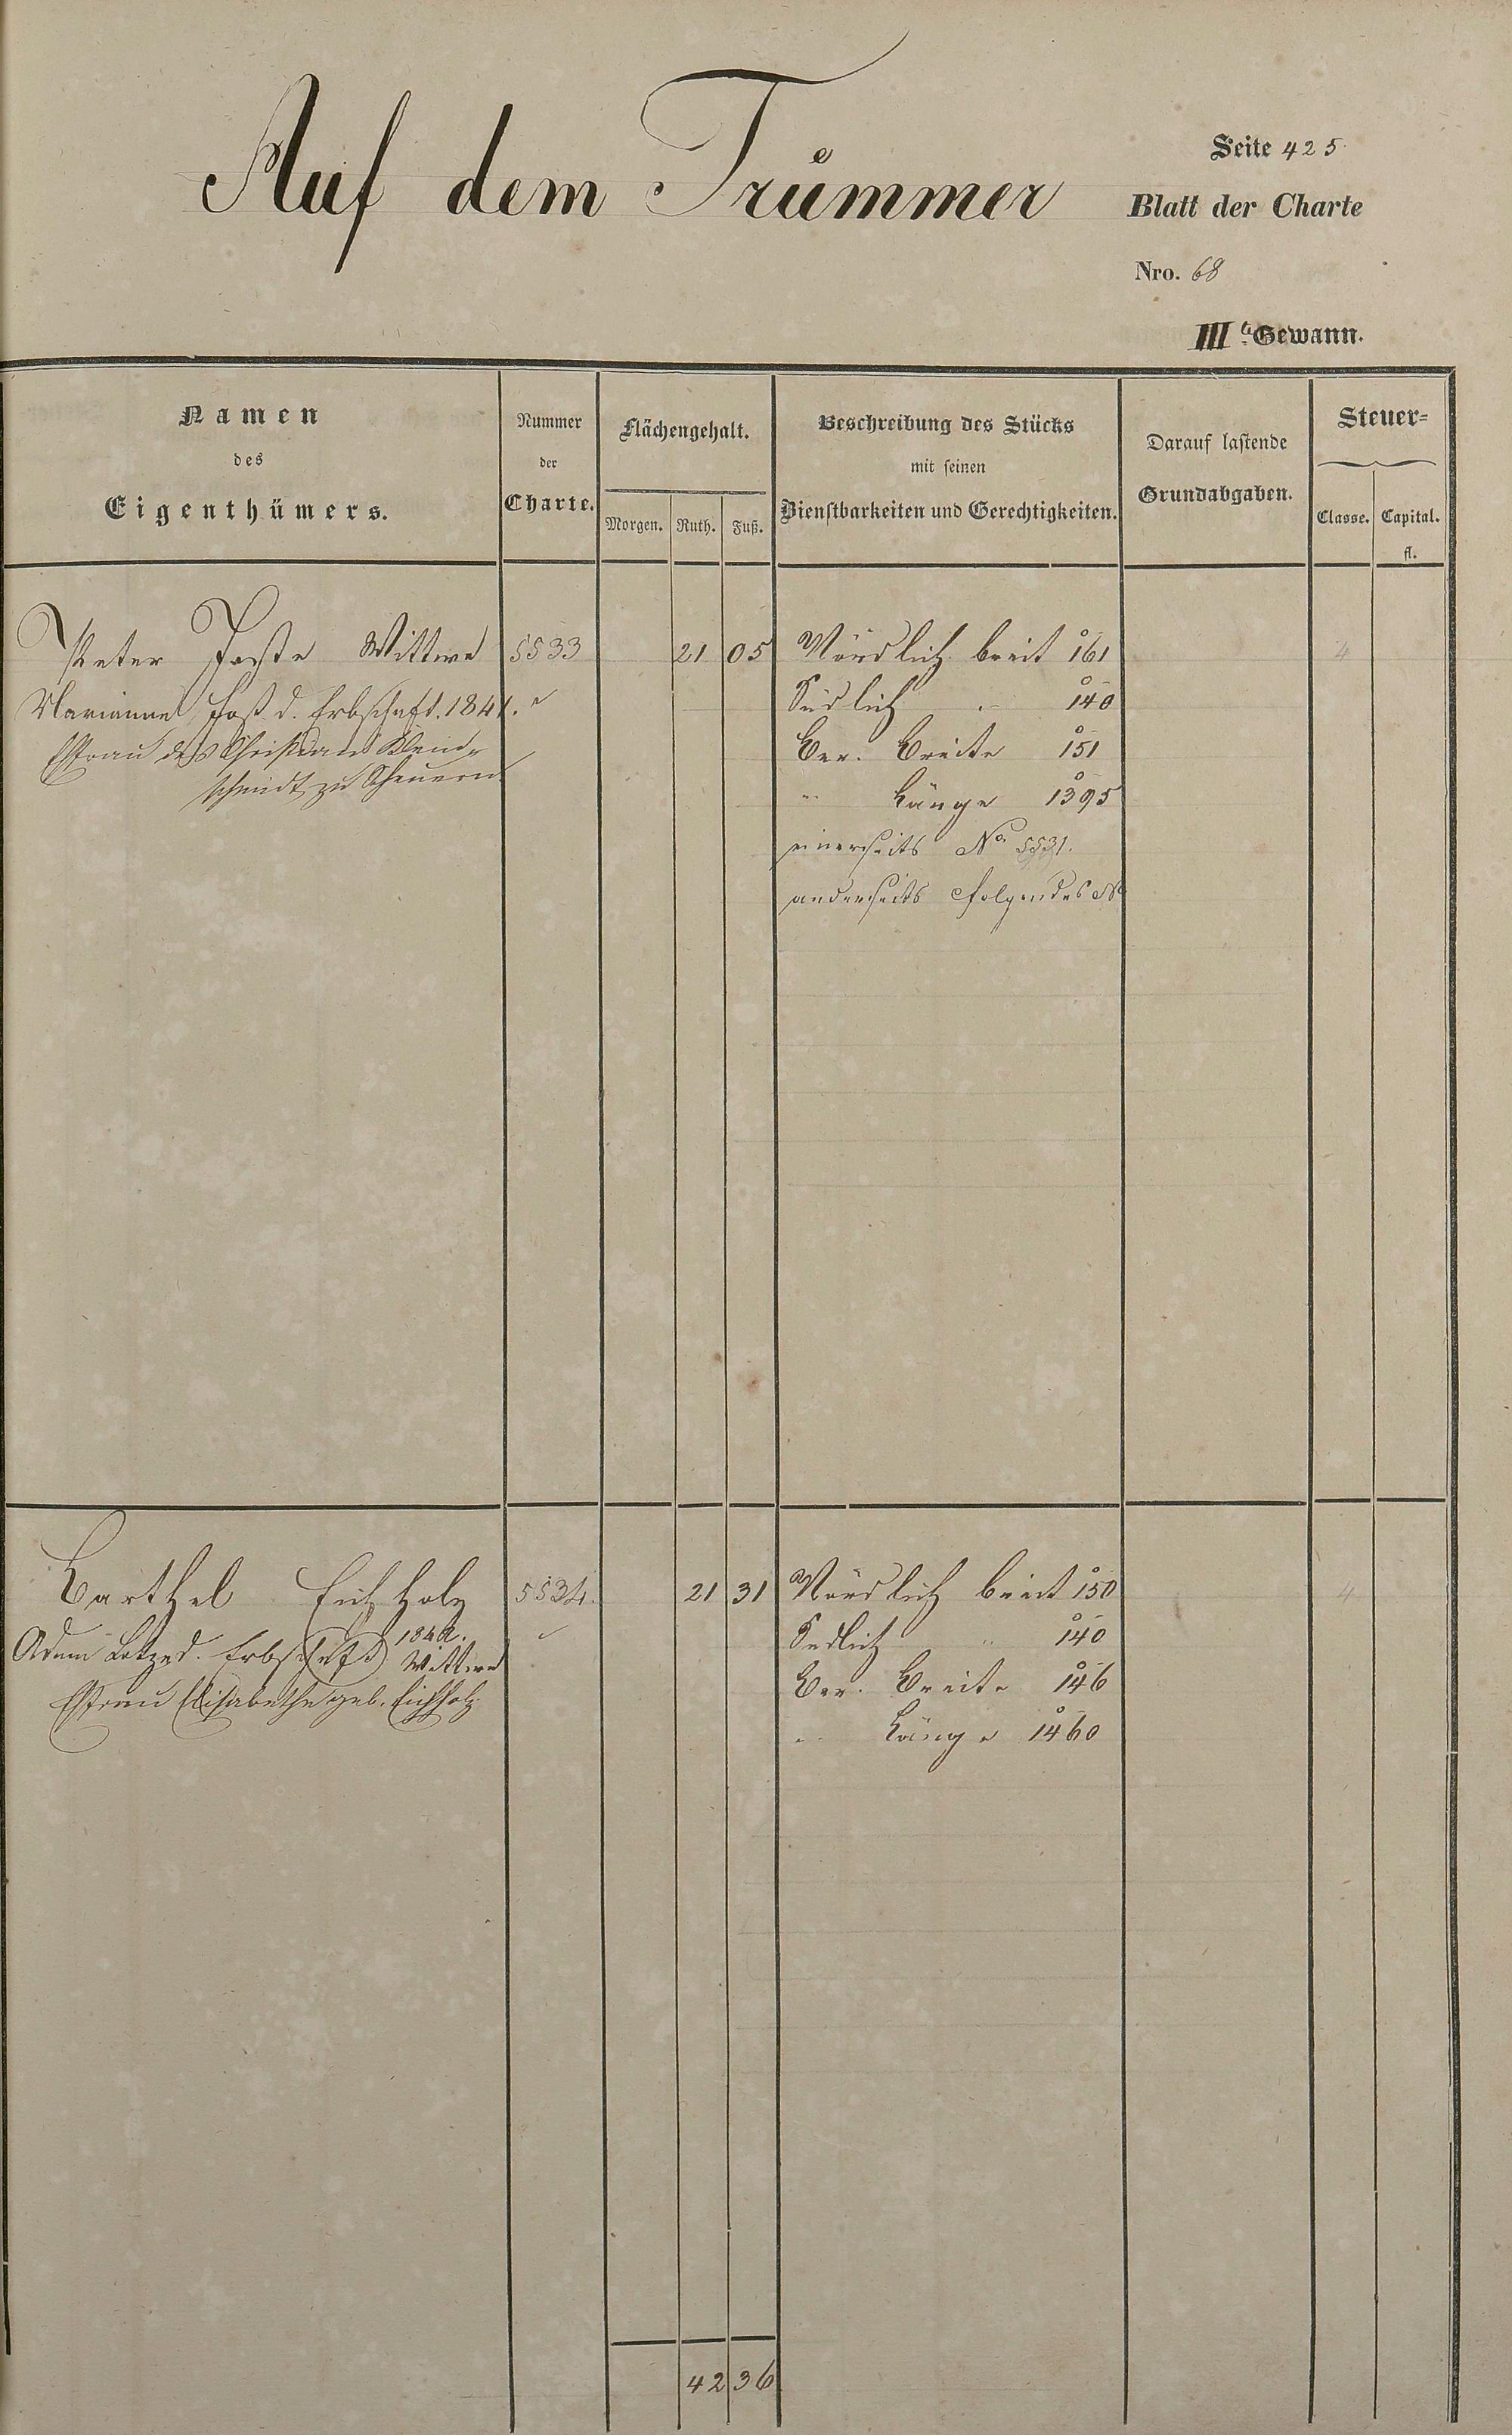 Auf dem Trümmer
Seite 425
Blatt der Charte
Nro. 68
III te Gewann.
Namen
des
Eigenthümers.
Nummer
der
Charte.
Flächengehalt.
Morgen. Ruth. Fuß.
Beschreibung des Stücks
mit seinen
Dienstbarkeiten und Gerechtigkeiten.
Darauf lastende
Grundabgaben.
Steuer=
Classe. Capital.
fl.
Peter Wittwe 5533 21 05 Nördlich breit 161 4
Marianne d. Erbschaft. 1841. Südlich " 140
Ehefrau des Christian Klein- Ber. Breite 151
schmidt zu Scheuern " Länge 1395
einerseits No 5531.
anderseits folgendes No
Barthel Eichholz 5534. 21 31 Nördlich breit 150 4
Adam d. Erbschaft Wittwe Südlich " 140
Ehefrau Elisabetha geb. Eichholz Ber. Breite 146
" Länge 1460
42 36